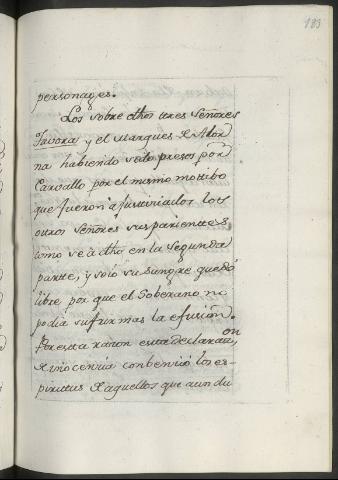 183
personages.
Los sobre dhos tres Señores
Tavora, y el Marques de Alor
na habiendo sido presos por
Carvallo por el mismo motibo
que fueron ajusticiados los
otros Señores sus parientes
como se á dho en la segunda
parte, y solo su sangre quedó
libre por que el Soberano no
podia sufrir mas la efusion.
Por esta razon esta declaracion
de inocencia conbenció los es-
piritus de aquellos que aun du